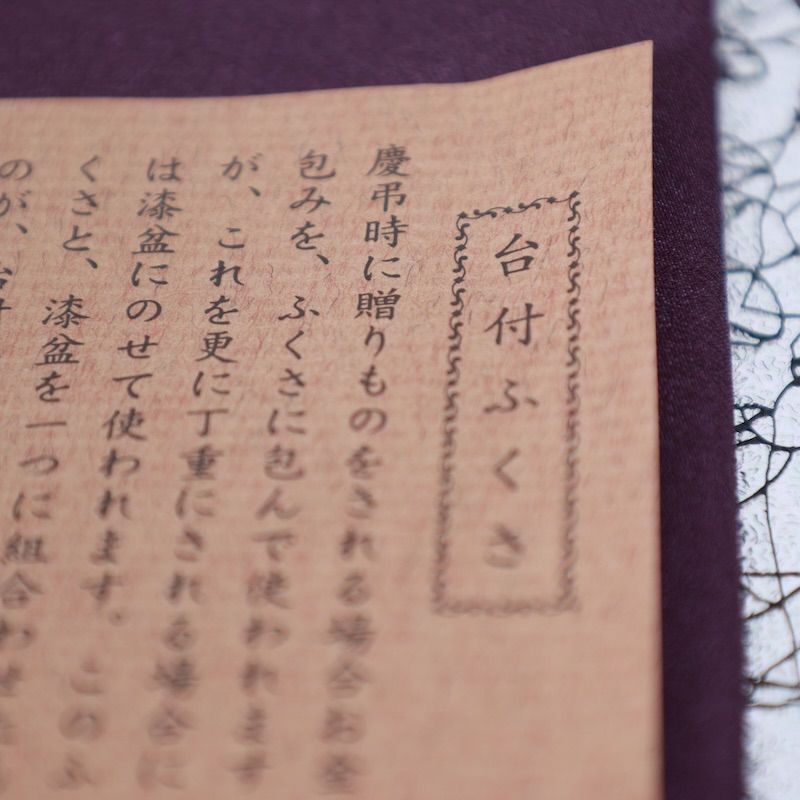 台付ふくさ
慶弔時に贈りものをされる場合お金
包みを、ふくさに包んで使われます
が、これを更に丁重にされる場合に
は漆盆にのせて使われます。このふ
くさと、漆盆を一つに組合わせた
のが、台付